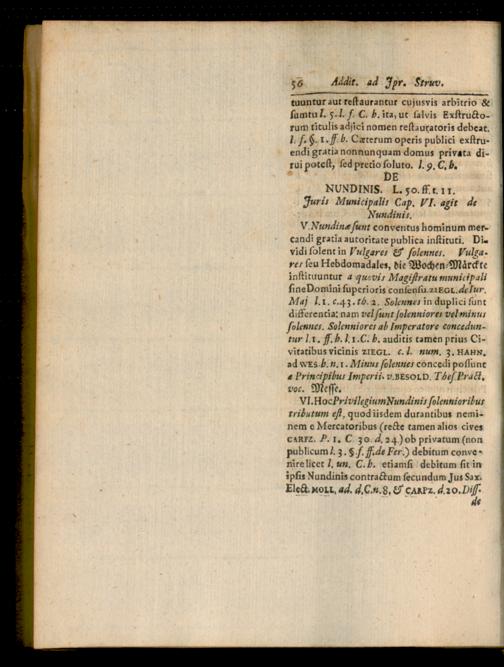 56 Addit. ad Jpr. Struv.
tuuntur aut restaurantur cujusvis arbitrio &
sumtu l. 5. l. f. C. h. ita, ut salvis Exstructo-
rum titulis adjici nomen restauratoris debeat.
l. f. §. 1. ff. h. Cæterum operis publici exstru-
endi gratia nonnunquam domus privata di-
rui potest, sed pretio soluto. l. 9. C. h.
DE
NUNDINIS. L. 50. ff. t. 11.
Juris Municipalis Cap. VI. agit de
Nundinis.
V. Nundinæ sunt conventus hominum mer-
candi gratia autoritate publica instituti. Di-
vidi solent in Vulgares & solennes. Vulga-
res seu Hebdomadales, die Wochen-Märckte
instituuntur a quovis Magistratu municipali
sine Domini superioris consensu. ZIEGL. de Jur.
Maj l. 1. c. 43. th. 2. Solennes in duplici sunt
differentia: nam vel sunt solenniores vel minus
solennes. Solenniores ab Imperatore concedun-
tur l. 1. ff. h. l. 1. C. h. auditis tamen prius Ci-
vitatibus vicinis ZIEGL. c. l. num. 3. HAHN.
ad WES. h. n. 1. Minus solennes concedi possunt
a Principibus Imperii. v. BESOLD. Thes. Pract.
voc. Messe.
VI. Hoc Privilegium Nundinis solennioribus
tributum est, quod iisdem durantibus nemi-
nem e Mercatoribus (recte tamen alios cives
CARPZ. P. 1. C. 30. d. 24.) ob privatum (non
publicum l. 3. § f. ff. de Fer.) debitum conve-
nire licet l. un. C. h. etiamsi debitum sit in
ipsis Nundinis contractum secundum Jus Sax.
Elect. MOLL. ad. d. C. n. 8. & CARPZ. d. 20. Diff.
de